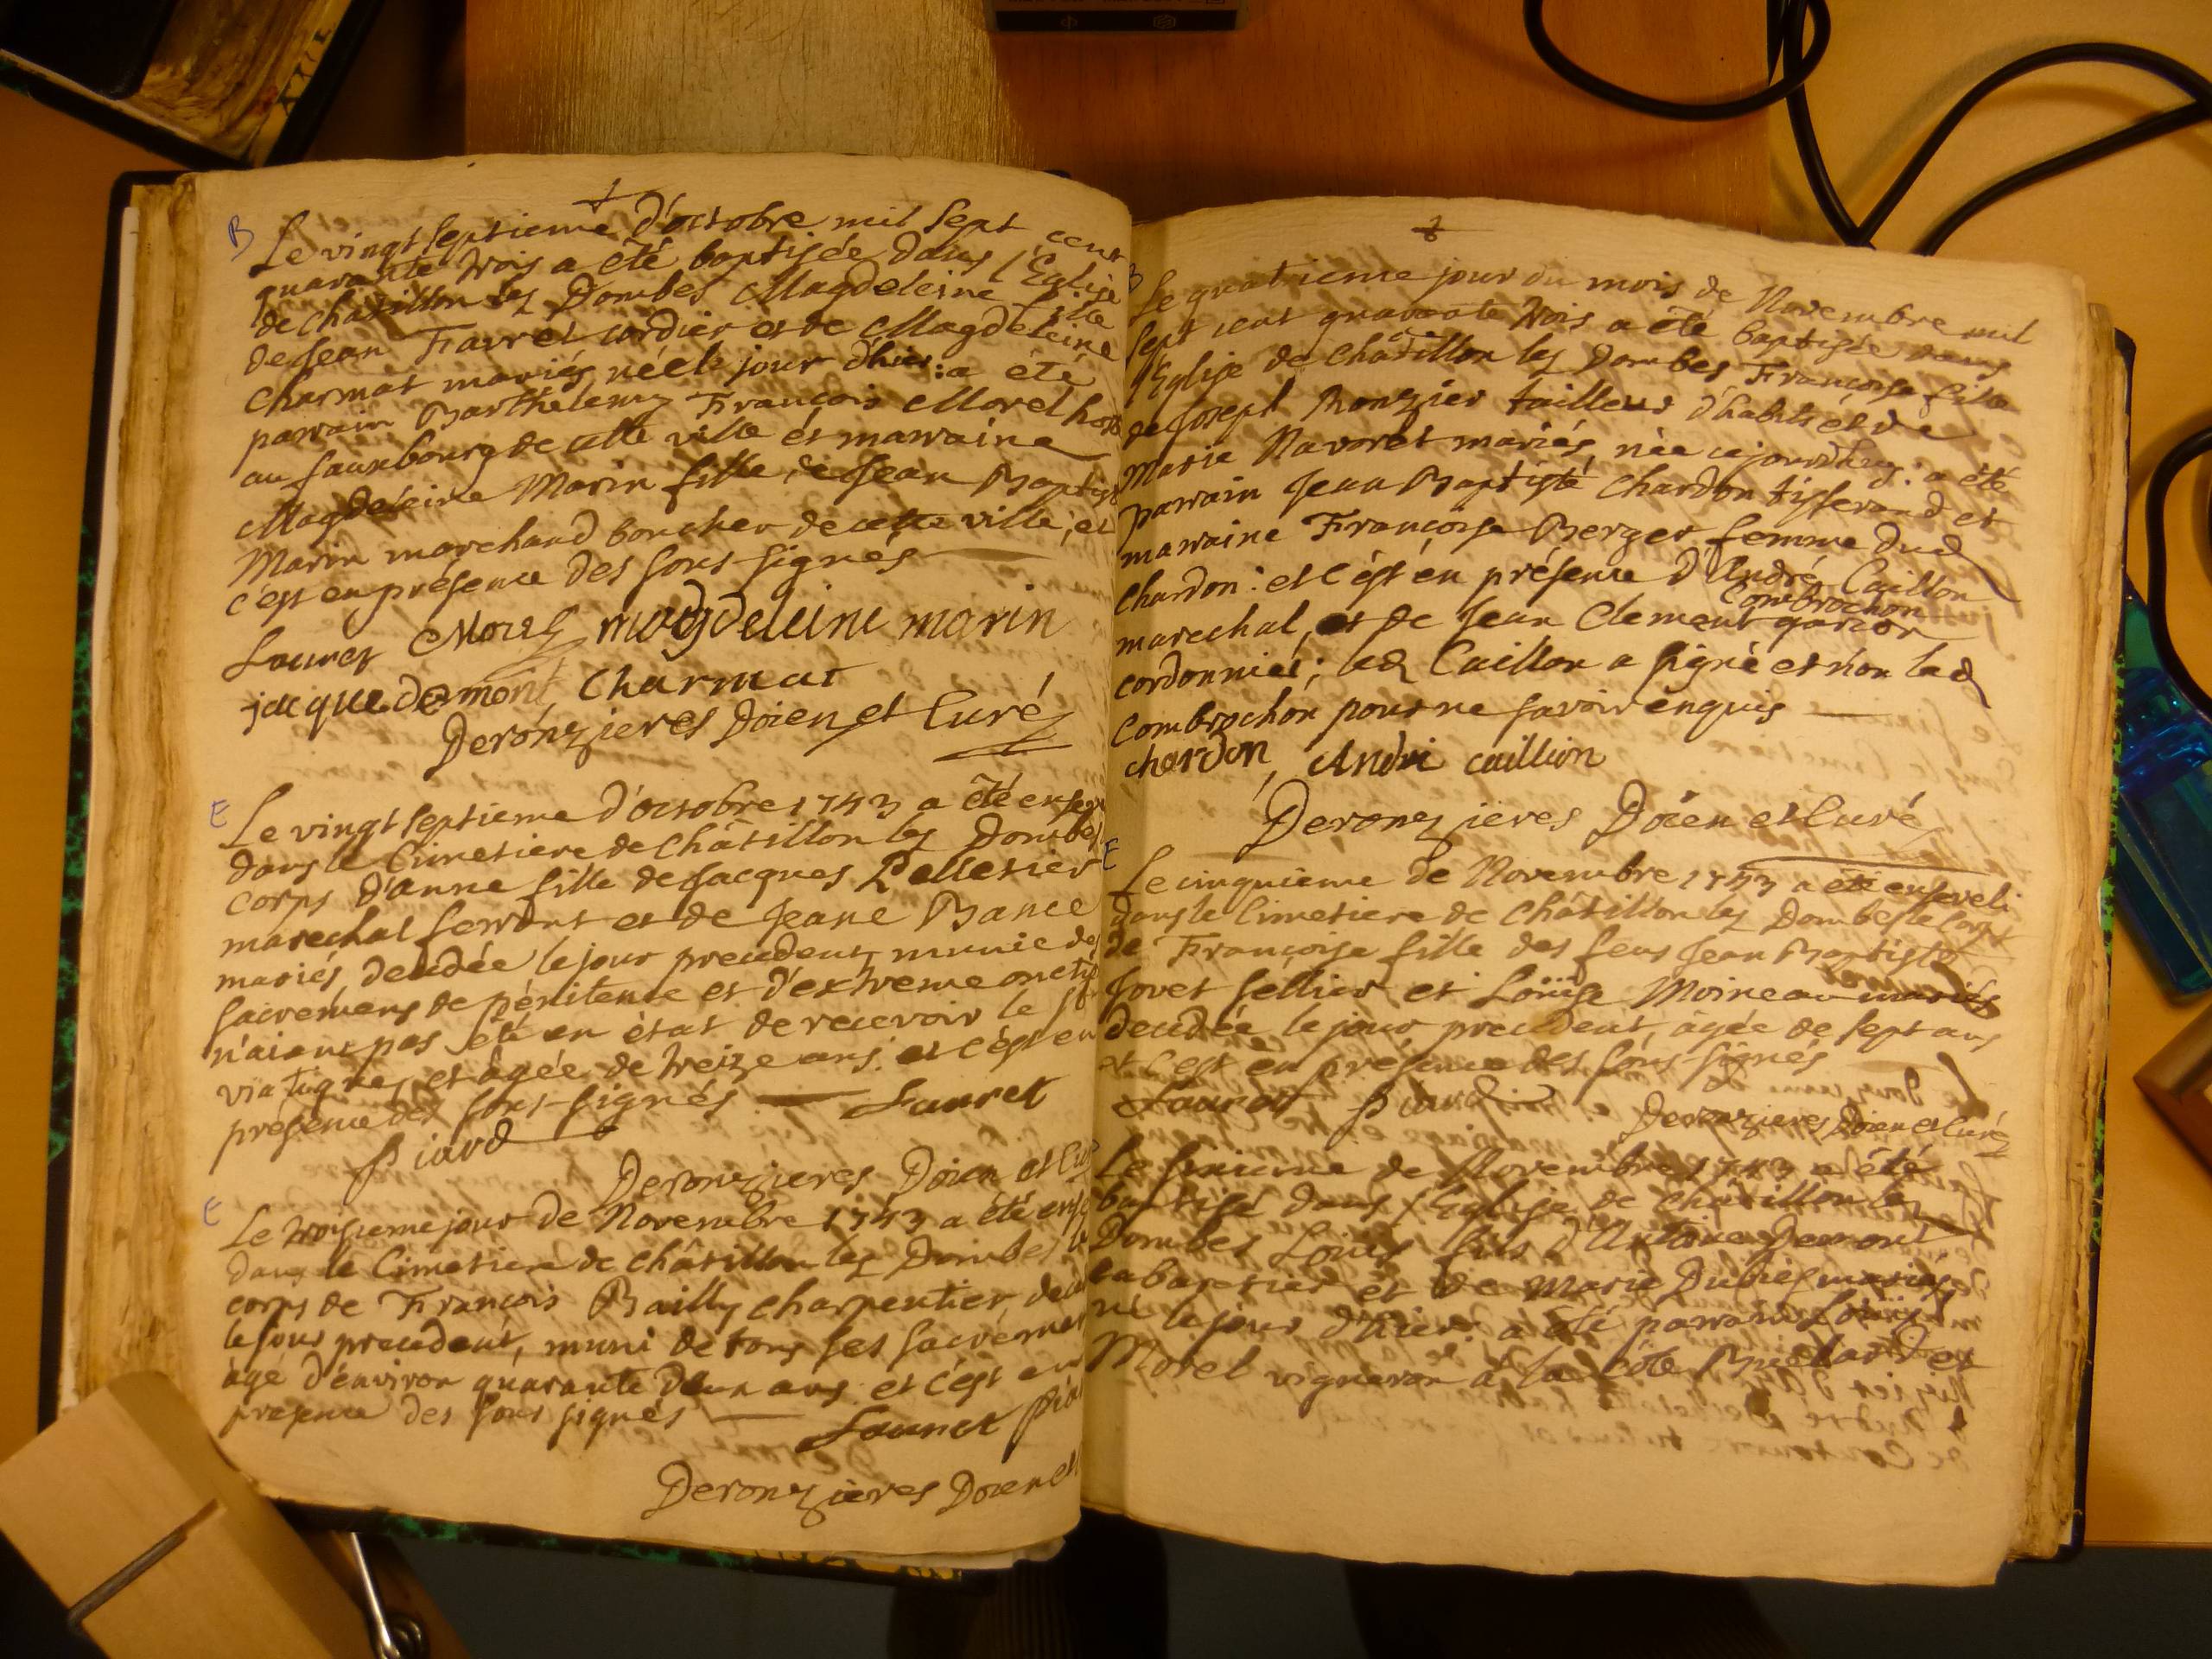 B
Le vingt septieme d'octobre mil sept cent
quarante trois a été baptisée dans l'Eglise
de châtillon les Dombes Magdeleine fille
de Jean Favret cordier et de Magdeleine
Charmat mariés, née le jour d'hier: a été
parrain Barthelemy François Morel hors
au fauxbourg de cette ville et marraine
Magdeleine Marin fille de Jean Baptiste
Marin marchand boucher de cette ville; et
c'est en présence des sous-signés
Lauret Morel magdeleine marin
jacque demont Charmat
Deronzieres Doien et Curé
E
Le vingt septieme d'octobre 1743 a été enseve
dans le Cimetiere de Châtillon les Dombes
corps d'anne fille de Jacques Pelletier
marechal ferrant et de Jeane Bance
mariés, decedée le jour precedent, munie des
sacremens de pénitence et d'extreme onctio
n'aiant pas été en état de recevoir le St
viatique, et agée de treize ans: et c'est en
présence des sous-signés Lauret
Piard
Deronzieres Doien et Cur
E
Le troisieme jour de Novembre 1743 a été enseve
dans le Cimetiere de châtillon les Dombes le
corps de François Bailly charpentier, deced
le jour precedent, muni de tous ses sacremens
âgé d'environ quarante deux ans et c'est en
presence des sous signés Lauret Piar
Deronzieres Doien et
B
Le quatrieme jour du mois de Novembre mil
sept cent quarante trois a été baptisée dans
l'Eglise de Châtillon les Dombes Françoise fille
de Joseph Ronzier tailleur d'habits et de
Marie Navoret mariés, née cejourdhuy: a été
parrain Jean Baptiste Chardon tisserand et
marraine Françoise Berger femme dud
Chardon: et c'est en présence d'André Caillon
marechal, et de Jean Clement Combrochon garçon
cordonnier; led Caillon a signé et non led
Combrochon pour ne savoir enquis
chardon, Andri caillion
Deronzieres Doien et Curé
E
Le cinquieme de Novembre 1743 a été enseveli
dans le Cimetiere de Châtillon les Dombes le corps
de Françoise fille des feus Jean Baptiste
Jovet sellier et Loüise Moineau mariés
decedée le jour precedent, âgée de sept ans
et c'est en présence des sous-signés
Lauret Piard Deronzieres Doien et Curé
Le sixieme de Novembre 1743 a été
baptisé dans l'Eglise de châtillon les
Dombes Loüis fils d'Antoine Demont
cabaretier et de Marie Dubief mariés,
né le jour d'hier: a été parrain Loüis
Morel vigneron à la côte et